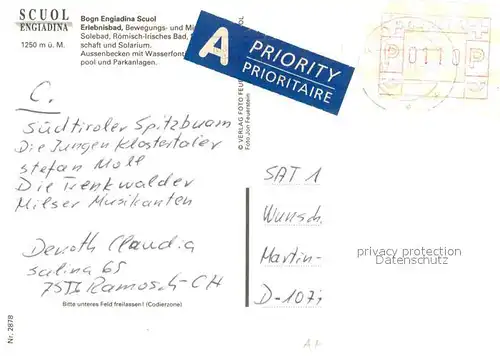 SCUOL
ENGIADINA
1250 m ü. M.
Bogn Engiadina Scuol
Erlebnisbad, Bewegungs- und Mi
Solebad, Römisch-Irisches Bad,
schaft und Solarium.
Aussenbecken mit Wasserfont
pool und Parkanlagen.
A PRIORITY
PRIORITAIRE
P 0110 P
C.
Südtiroler Spitzbuam
Die Jungen Klostertaler
Stefan Moll
Die Trenkwalder
Milser Musikanten
Denoth Claudia
Salina 65
Ramosch-CH
Bitte unteres Feld freilassen! (Codierzone)
Nr. 2878
© VERLAG FOTO FEU
Foto Jon Feuerstein
SAT 1
Wunsch
Martin-
D-107
privacy protection
Datenschutz